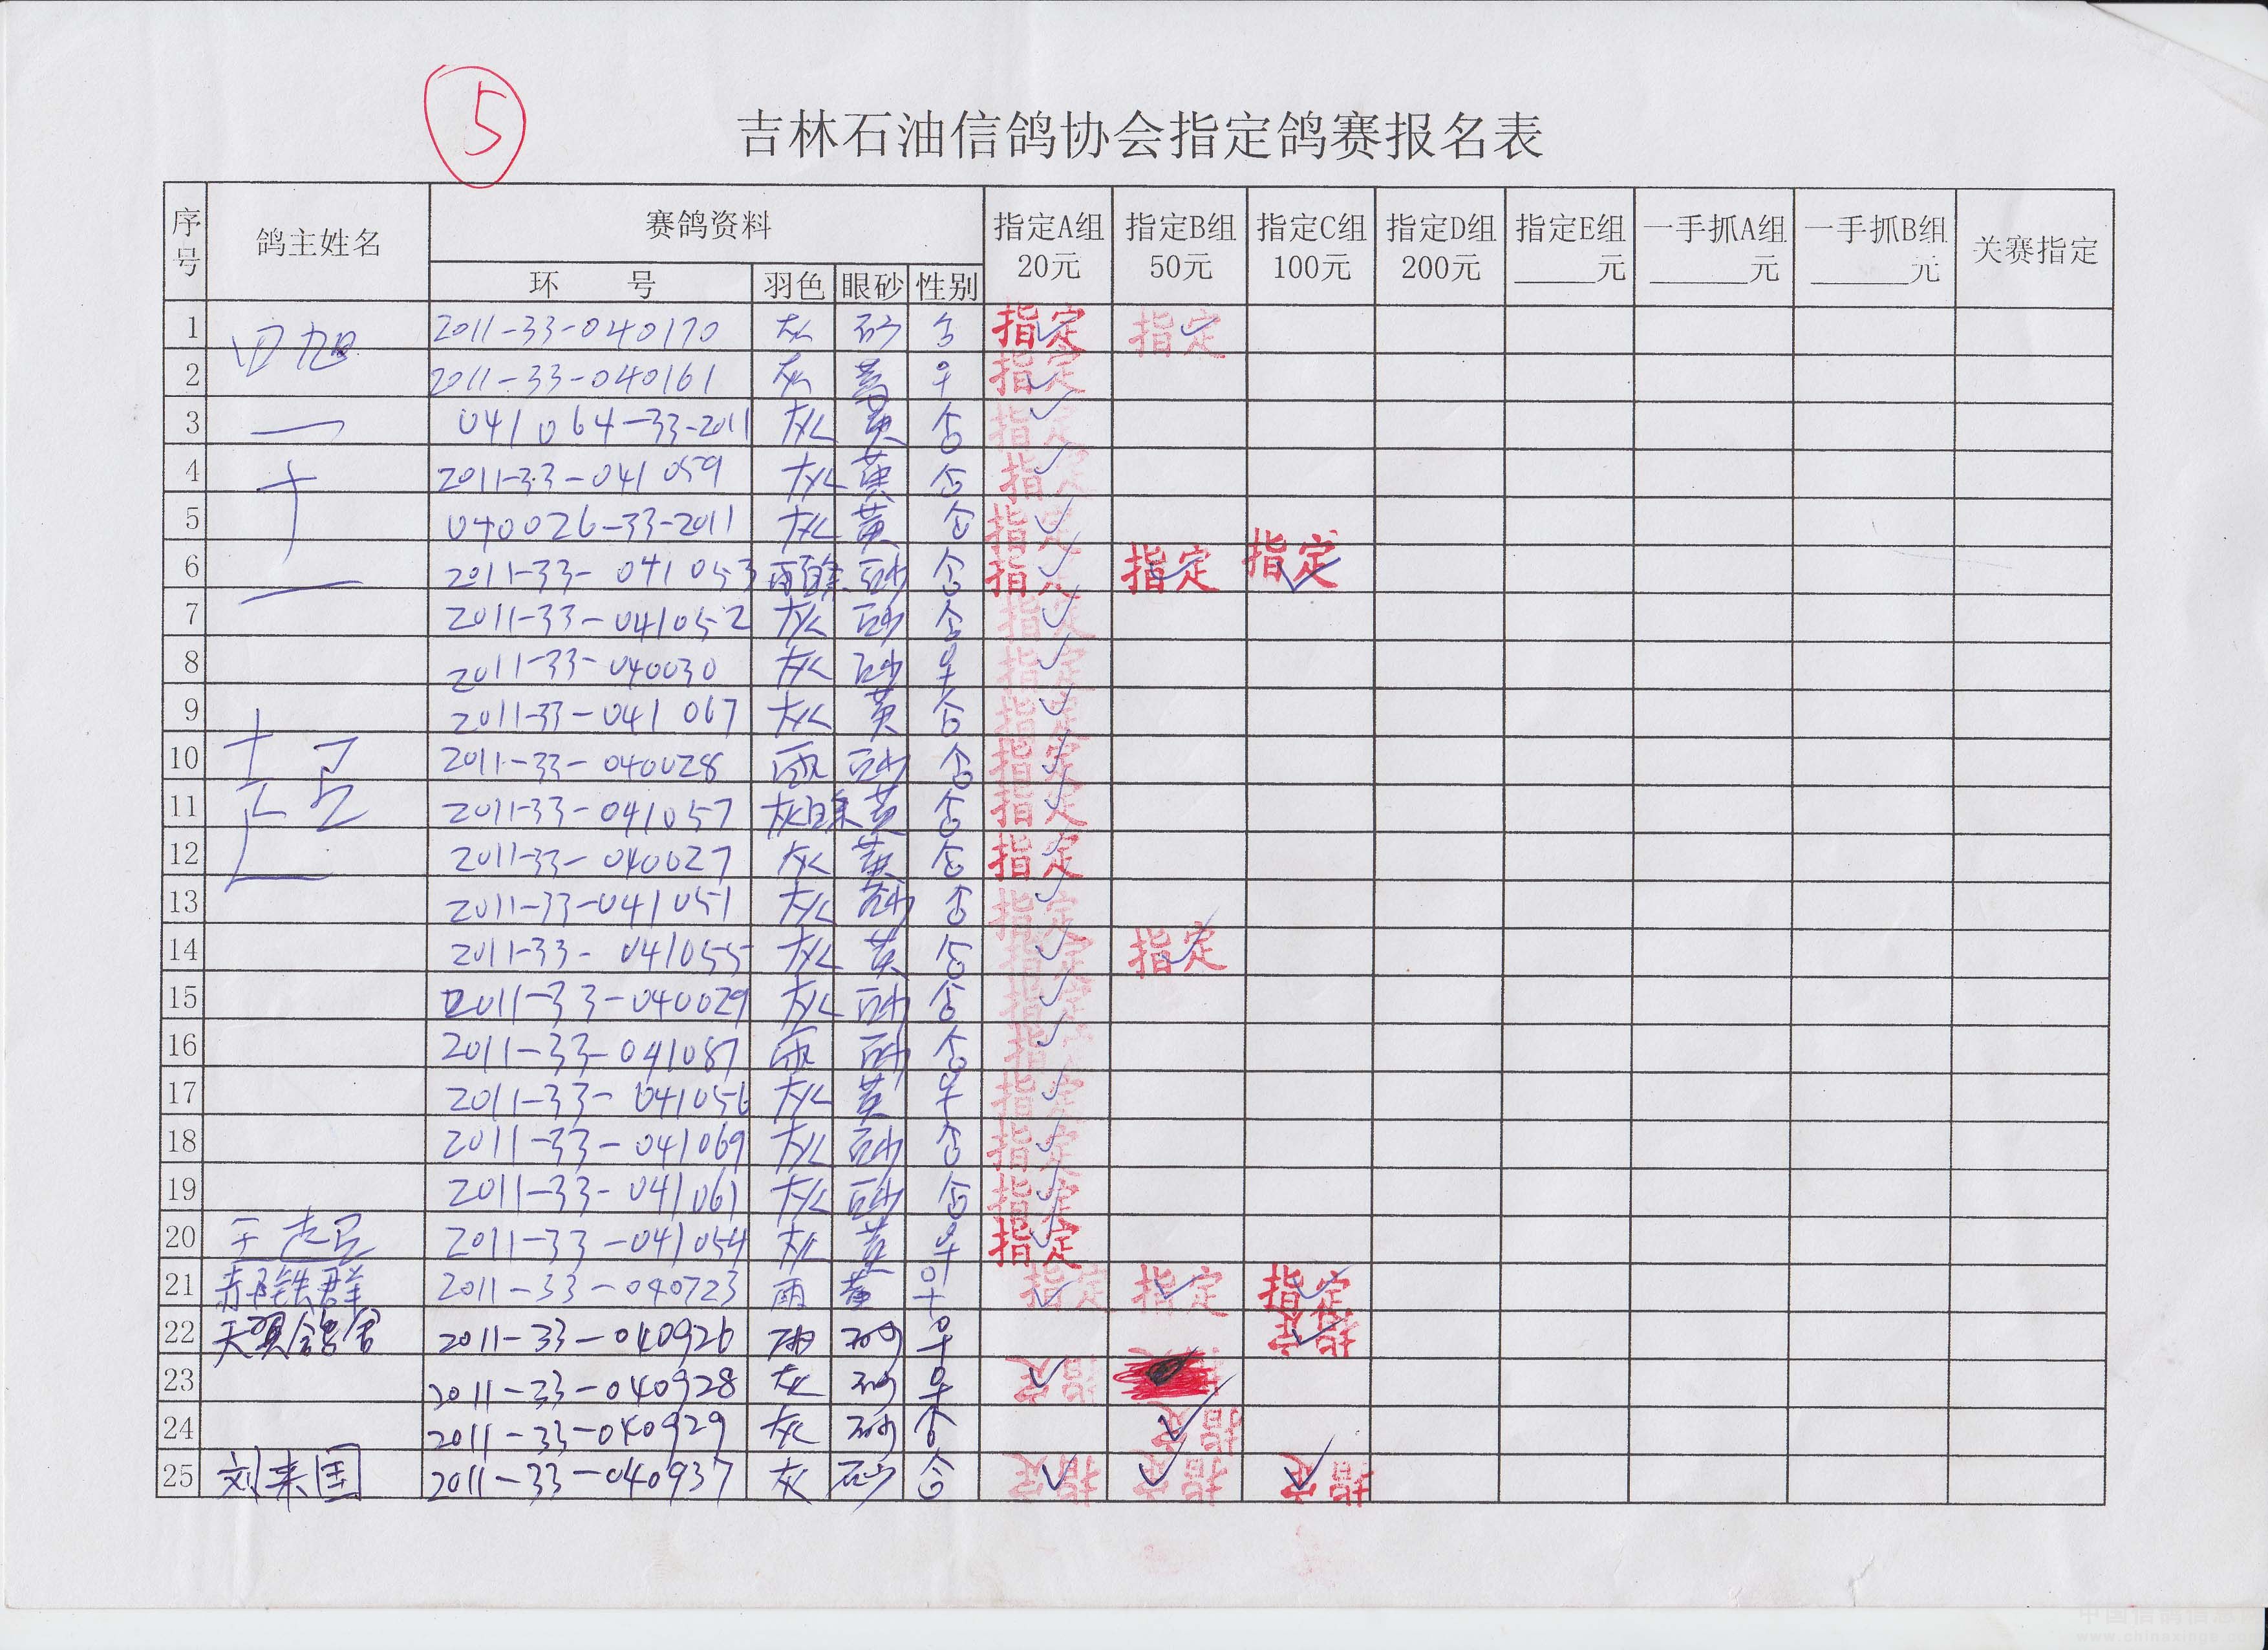 5
吉林石油信鸽协会指定鸽赛报名表
序号 鸽主姓名 赛鸽资料 指定A组 20元 指定B组 50元 指定C组 100元 指定D组 200元 指定E组 ____元 一手抓A组 ____元 一手抓B组 ____元 关赛指定
环 号 羽色 眼砂 性别
1 田旭 2011-33-040170 灰 砂 指定 指定
2 2011-33-040161 灰 黄 ♀ 指定
3 041064-33-2011 灰 黄 指定
4 2011-33-041059 灰 黄 指定
5 040026-33-2011 灰 黄 指定
6 2011-33-041053 雨 砂 指定 指定 指定
7 2011-33-041052 灰 砂 指定
8 2011-33-040030 灰 砂 ♀ 指定
9 2011-33-041067 灰 黄 指定
10 2011-33-040028 雨 砂 指定
11 2011-33-041057 灰白条 黄 指定
12 2011-33-040027 灰 黄 指定
13 2011-33-041051 灰 砂 指定
14 2011-33-041055 灰 黄 指定 指定
15 2011-33-040029 灰 砂 指定
16 2011-33-041087 雨 砂 指定
17 2011-33-041056 灰 黄 ♀ 指定
18 2011-33-041069 灰 砂 指定
19 2011-33-041061 灰 砂 指定
20 2011-33-041054 灰 黄 ♀ 指定
21 赤铁群 2011-33-040723 雨 黄 ♀ 指定 指定 指定
22 天顺鸽舍 2011-33-040926 雨 砂 ♀ 指定
23 2011-33-040928 灰 砂 ♀ 指定
24 2011-33-040929 灰 砂 指定
25 刘来国 2011-33-040937 灰 砂 指定 指定 指定
中国信鸽信息
www.chinaxinge.com